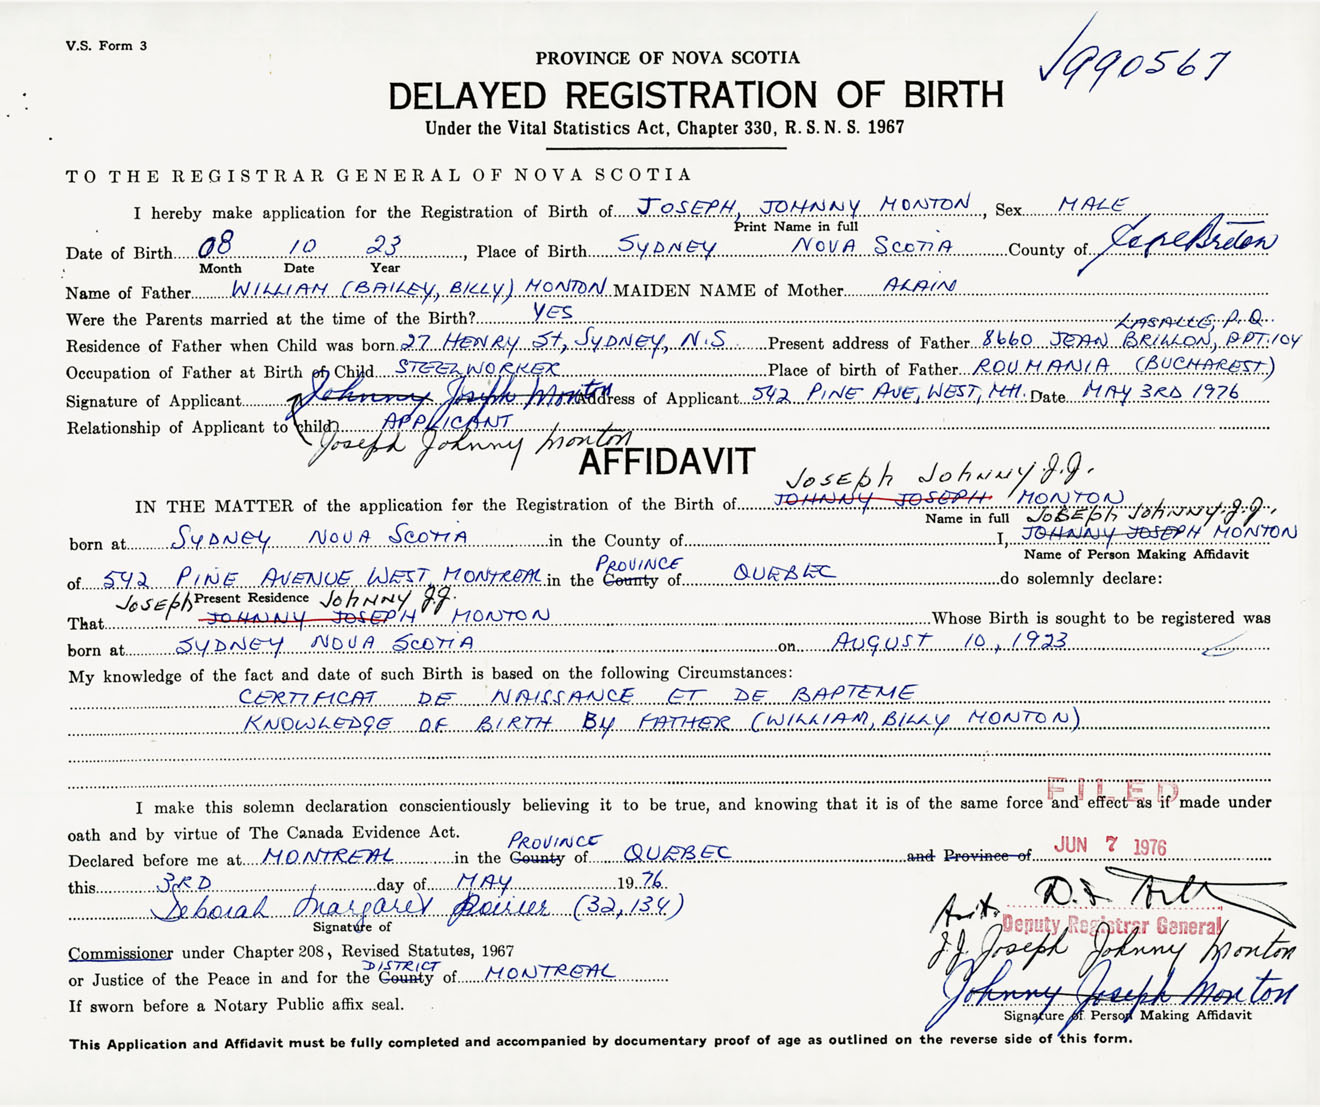 V.S. Form 3
1990567
PROVINCE OF NOVA SCOTIA
DELAYED REGISTRATION OF BIRTH
Under the Vital Statistics Act, Chapter 330, R. S. N. S. 1967
TO THE REGISTRAR GENERAL OF NOVA SCOTIA
I hereby make application for the Registration of Birth of JOSEPH, JOHNNY MONTON, Sex MALE
Print Name in full
Date of Birth 08 10 23, Place of Birth SYDNEY NOVA SCOTIA County of Cape Breton
Month Date Year
Name of Father WILLIAM (BAILEY, BILLY) MONTON MAIDEN NAME of Mother ALAIN
Were the Parents married at the time of the Birth? YES
LASALLE, P.Q.
Residence of Father when Child was born 27 HENRY St, SYDNEY, N.S Present address of Father 8660 JEAN BRILLON, APT. 104
Occupation of Father at Birth of Child STEELWORKER Place of birth of Father ROUMANIA (BUCHAREST)
Signature of Applicant Johnny Joseph Monton Address of Applicant 542 PINE AVE, WEST, Mtl. Date MAY 3RD 1976
Relationship of Applicant to child APPLICANT
Joseph Johnny Monton
AFFIDAVIT
JOSEPH JOHNNY J.J.
IN THE MATTER of the application for the Registration of the Birth of JOHNNY JOSEPH MONTON
Name in full JOSEPH JOHNNY J.J.
born at SYDNEY NOVA SCOTIA in the County of I, JOHNNY JOSEPH MONTON
Name of Person Making Affidavit
PROVINCE
of 542 PINE AVENUE WEST, MONTREAL in the County of QUEBEC do solemnly declare:
JOSEPH Present Residence JOHNNY J.J.
That JOHNNY JOSEPH MONTON Whose Birth is sought to be registered was
born at SYDNEY NOVA SCOTIA on AUGUST 10, 1923
My knowledge of the fact and date of such Birth is based on the following Circumstances:
CERTIFICAT DE NAISSANCE ET DE BAPTEME
KNOWLEDGE OF BIRTH BY FATHER (WILLIAM, BILLY MONTON)
FILED
I make this solemn declaration conscientiously believing it to be true, and knowing that it is of the same force and effect as if made under
oath and by virtue of The Canada Evidence Act.
PROVINCE
Declared before me at MONTREAL in the County of QUEBEC and Province of
JUN 7 1976
this 3RD day of MAY 1976.
Deborah Margaret Poirier (32,134)
Signature of
Deputy Registrar General
Commissioner under Chapter 208, Revised Statutes, 1967
J.J. Joseph Johnny Monton
DISTRICT
or Justice of the Peace in and for the County of MONTREAL
Johnny Joseph Monton
If sworn before a Notary Public affix seal.
Signature of Person Making Affidavit
This Application and Affidavit must be fully completed and accompanied by documentary proof of age as outlined on the reverse side of this form.